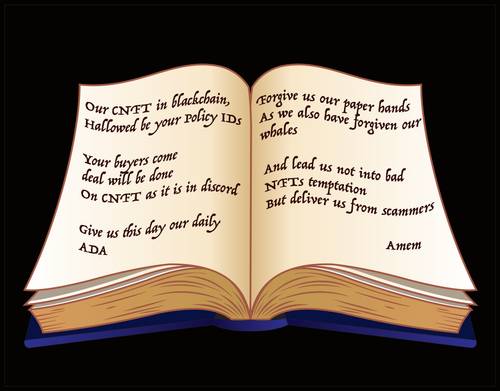 Our CNFT in blockchain,
Hallowed be your Policy IDs
Your buyers come
deal will be done
On CNFT as it is in discord
Give us this day our daily
ADA
Forgive us our paper hands
As we also have forgiven our
whales
And lead us not into bad
NFTs temptation
But deliver us from scammers
Amem